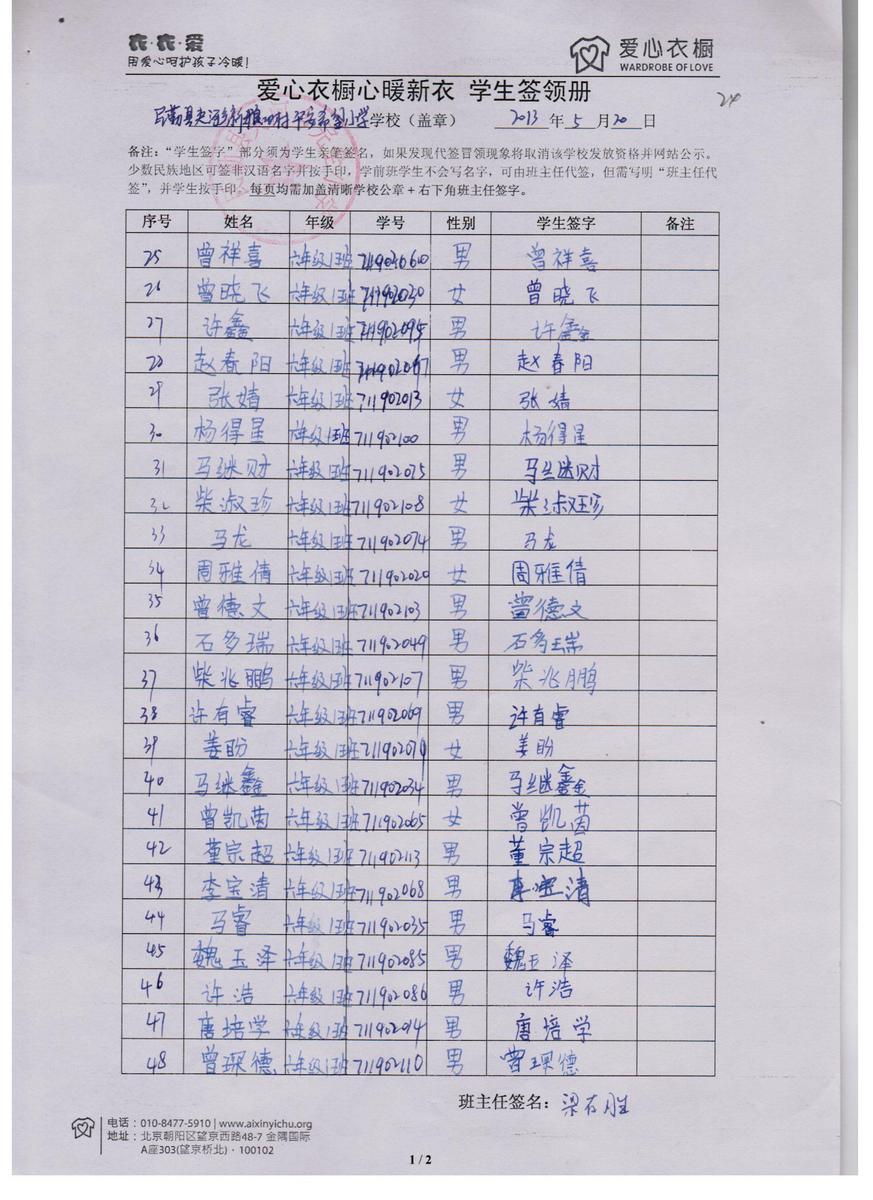 衣·衣·爱
用爱心呵护孩子冷暖!
爱心衣橱
WARDROBE OF LOVE
爱心衣橱心暖新衣 学生签领册
24
小学学校（盖章） 2013 年 5 月 20 日
备注：“学生签字”部分须为学生亲笔签名，如果发现代签冒领现象将取消该学校发放资格并网站公示。
少数民族地区可签非汉语名字并按手印，学前班学生不会写名字，可由班主任代签，但需写明“班主任代
签”，并学生按手印。每页均需加盖清晰学校公章+右下角班主任签字。
序号 姓名 年级 学号 性别 学生签字 备注
25 曾祥喜 六年级1班 男 曾祥喜
26 曾晓飞 六年级1班 711902030 女 曾晓飞
27 许鑫 六年级1班 711902095 男 许鑫
28 赵春阳 六年级1班 711902067 男 赵春阳
29 张婧 六年级1班 711902013 女 张婧
30 杨得星 六年级1班 711902100 男 杨得星
31 马继财 六年级1班 711902075 男 马继财
32 柴淑珍 六年级1班 711902108 女 柴淑珍
33 马龙 六年级1班 711902074 男 马龙
34 周雅倩 六年级1班 711902020 女 周雅倩
35 曾德文 六年级1班 711902103 男 曾德文
36 石多瑞 六年级1班 711902049 男 石多瑞
37 柴兆鹏 六年级1班 711902107 男 柴兆鹏
38 许有睿 六年级1班 711902069 男 许有睿
39 姜盼 六年级1班 女 姜盼
40 马继鑫 六年级1班 711902034 男 马继鑫
41 曾凯茵 六年级1班 711902065 女 曾凯茵
42 董宗超 六年级1班 711902113 男 董宗超
43 李宝清 六年级1班 711902068 男 李宝清
44 马睿 六年级1班 711902035 男 马睿
45 魏玉泽 六年级1班 711902085 男 魏玉泽
46 许浩 六年级1班 711902086 男 许浩
47 唐培学 六年级1班 711902014 男 唐培学
48 曾琛德 六年级1班 711902110 男 曾琛德
班主任签名：梁有胜
电话：010-8477-5910 | www.aixinyichu.org
地址：北京朝阳区望京西路48-7 金隅国际
A座303(望京桥北)·100102
1 / 2